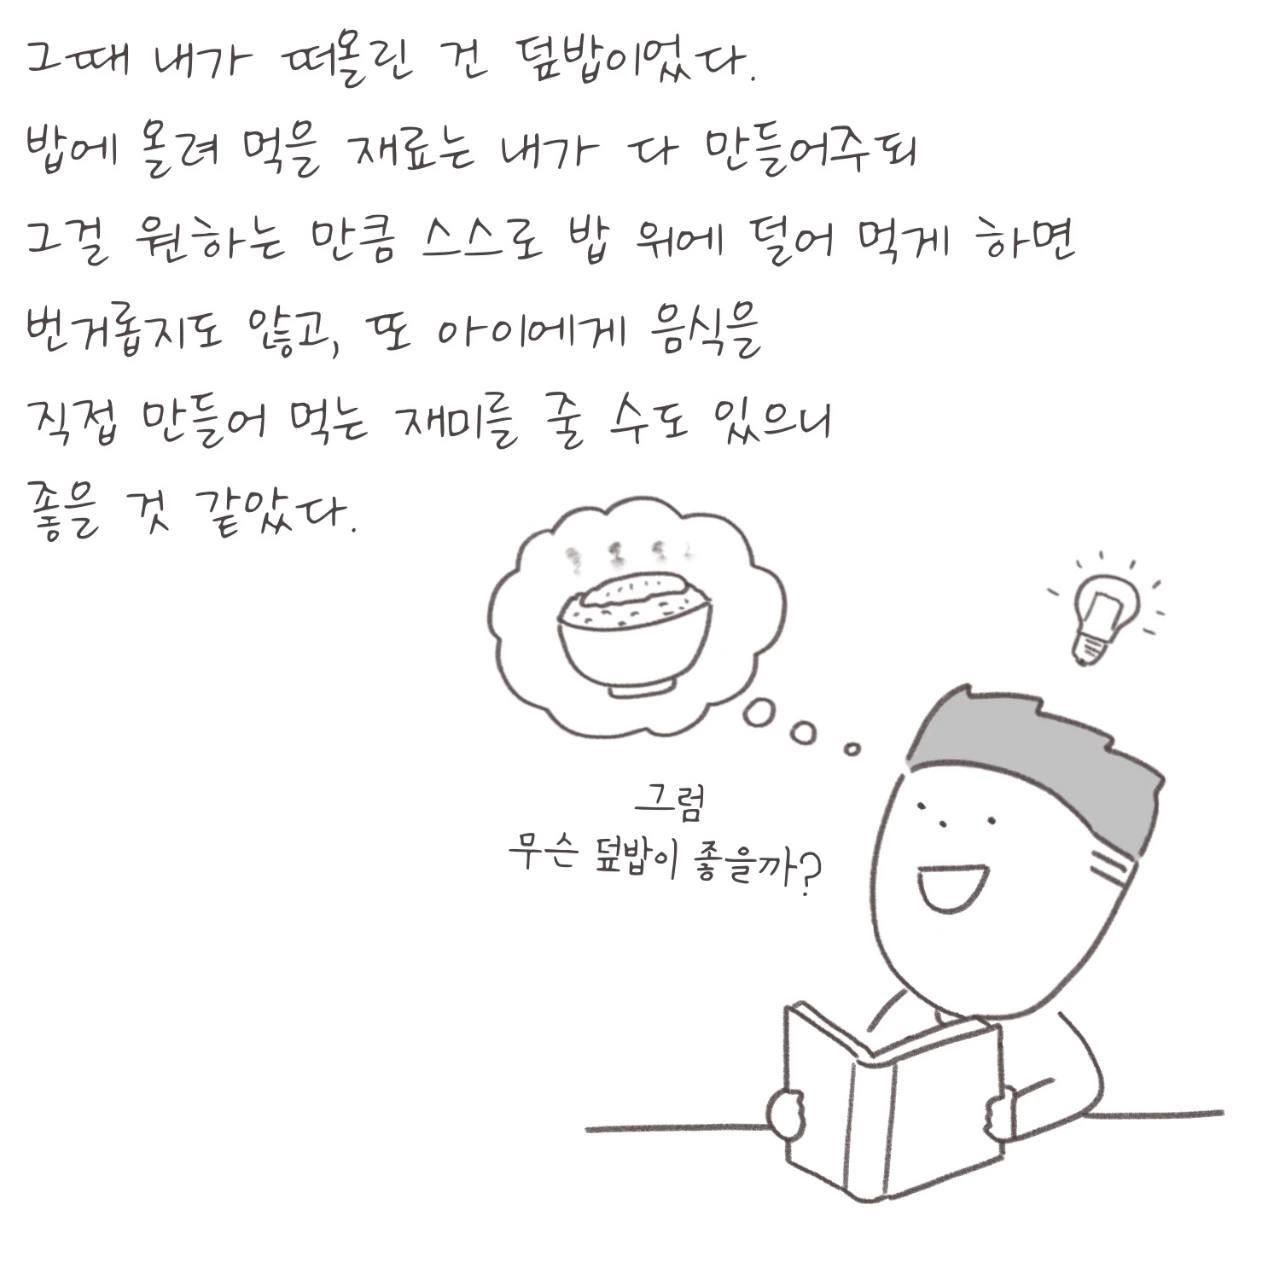 그때 내가 떠올린 건 덮밥이었다.
밥에 올려 먹을 재료는 내가 다 만들어주되
그걸 원하는 만큼 스스로 밥 위에 덜어 먹게 하면
번거롭지도 않고, 또 아이에게 음식을
직접 만들어 먹는 재미를 줄 수도 있으니
좋을 것 같았다.
그럼
무슨 덮밥이 좋을까?